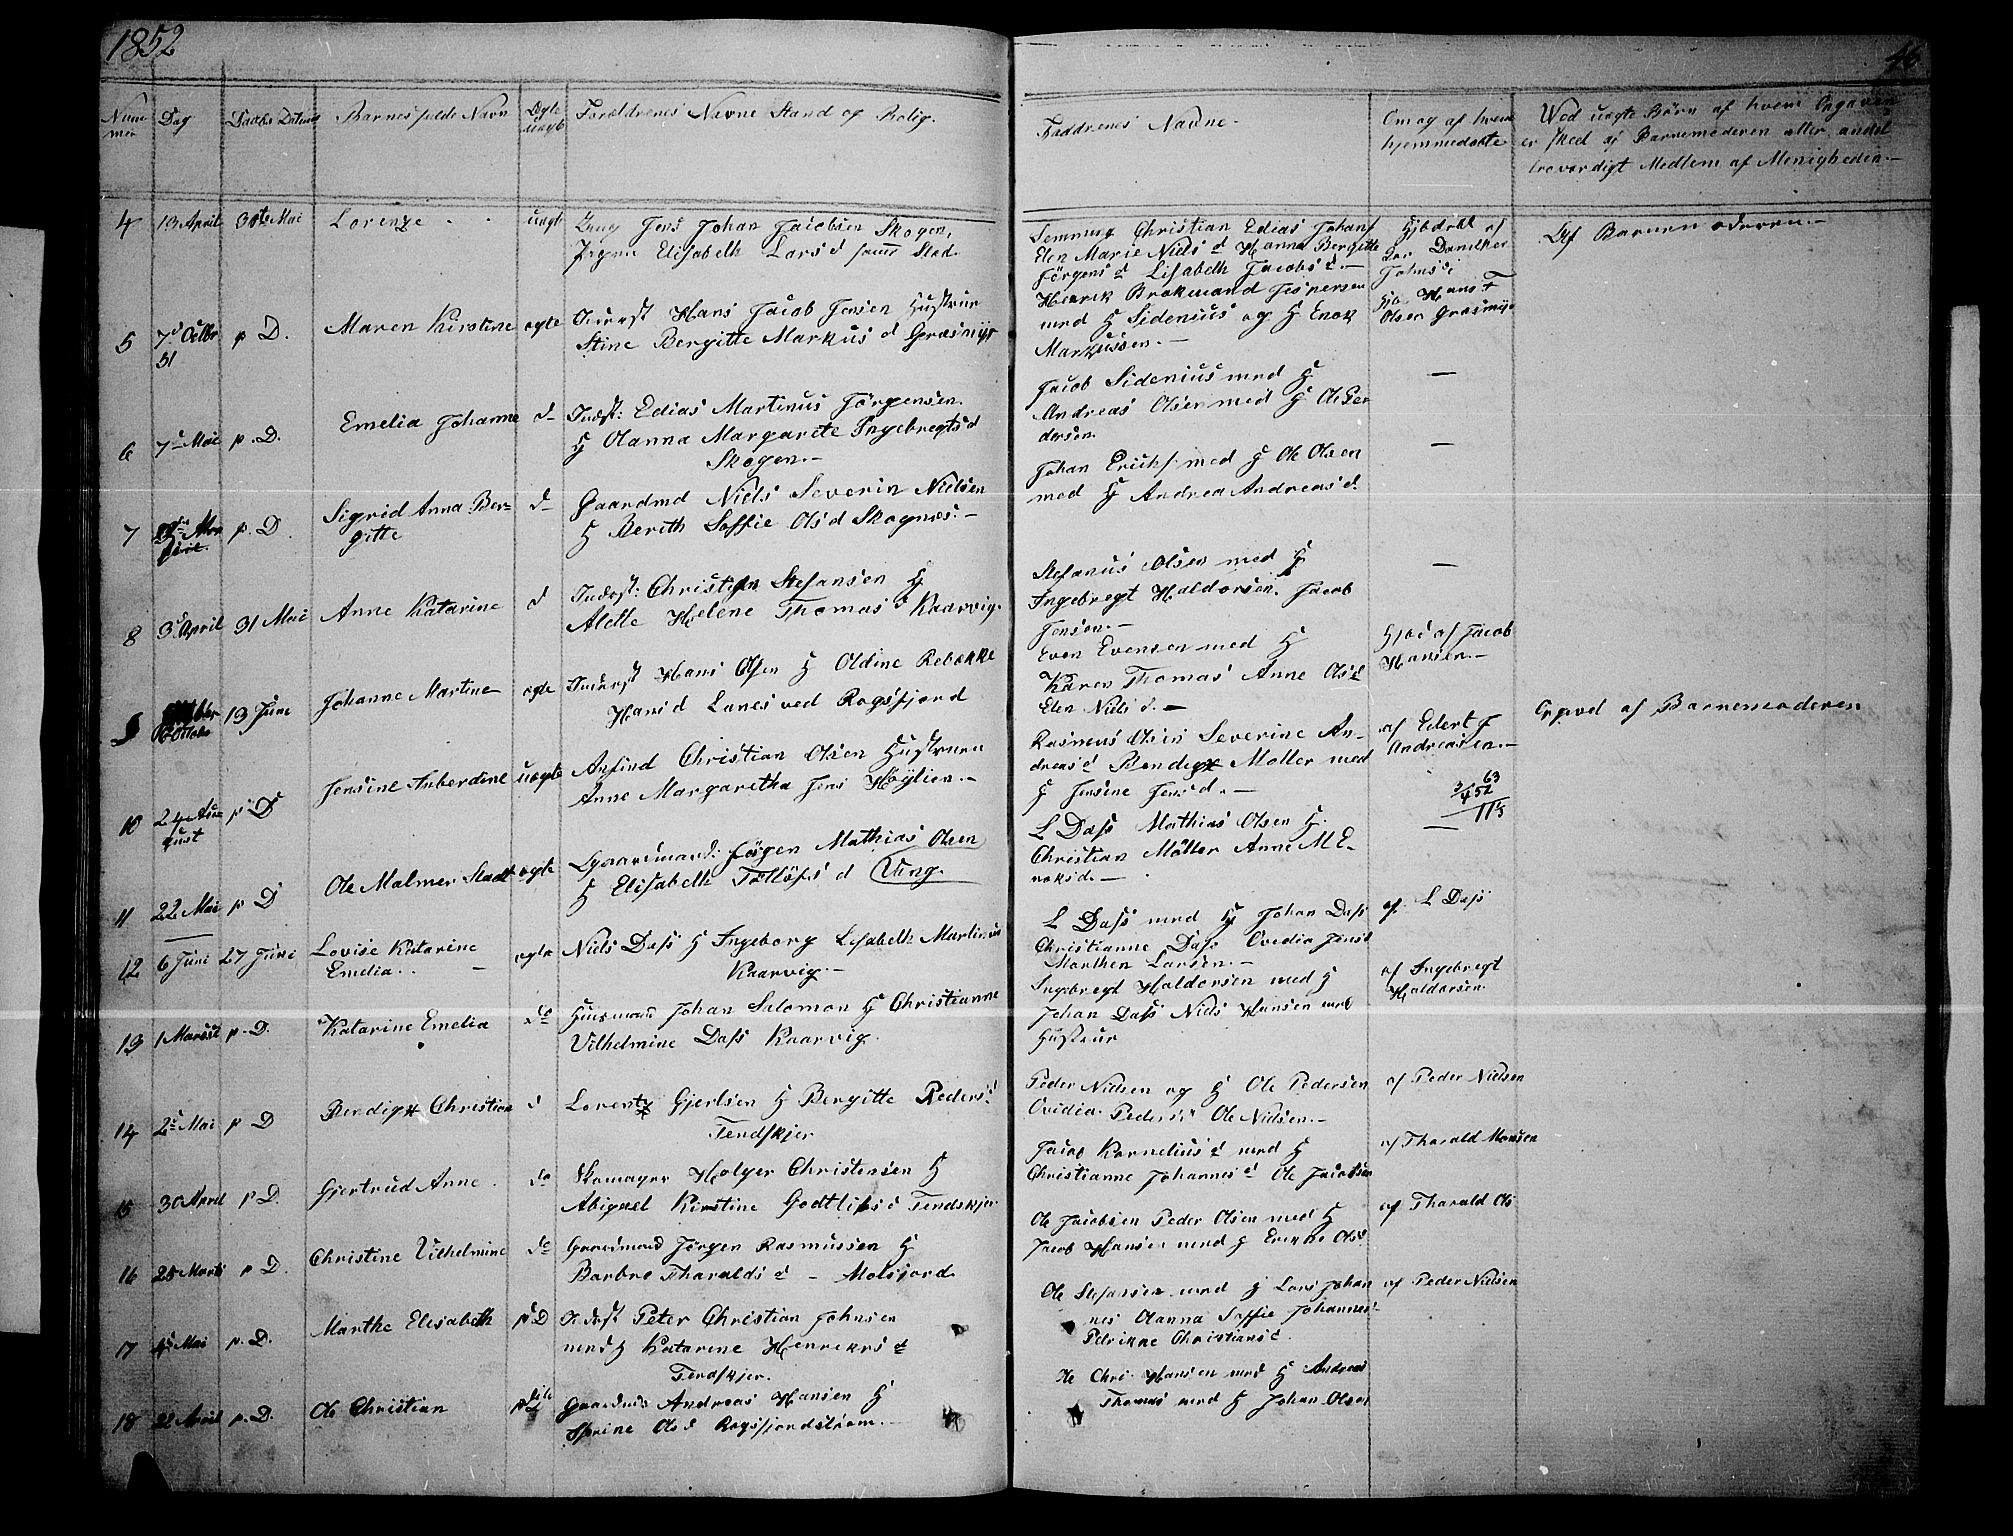 1852
46
Num
mer
Dag
Daabs Datum
Barnets fulde Navn
Ægte
uægte
Forældrenes Navne Stand og Bolig.
Faddrenes Navne.
Om og af hvem
hjemmedøbte
Ved uægte Børn af hvem Opgaven
er skeed af Barnemoderen eller andet
troværdigt Medlem af Menigheden.
4 13 April 30te Mai Lorenze uægte Ung Jens Johan Jacobsen Skogen,
Elisabeth Lars d samme Sted.
Christian Edias Johans
Elen Marie Niels d Hanna Bergitte
Jørgens d Lisabeth Jacobs d.
Hjdøbt af
Af Barnemoderen
5 7d Octbr 51 p D. Maren Kirstine ægte Inderst Hans Jacob Jensen Hustrue
Stine Bergitte Markus d Græsmyr
Henrik Brokmand Jespersen
med H Sidenius og H Enok
Markussen.
Hjd Hans
Olsen Græsmyr
6 7d Mai p. D. Emelia Johanne d Indst: Edias Martinus Jørgensen
H Olanna Margarete Ingebregts d
Skogen.
Jacob Sidenius med H
Andreas Olsen med H Ole Pe
dersen
7 p. D. Sigrid Anna Ber-
gitte d Gaardmd Niels Severin Nielsen
H Berith Soffie Ols d Skognæs.
Johan Erichs med H Ole Olsen
med H Andrea Andreas d.
8 3d April 31 Mai Anne Katarine d Inderst: Christian Stefansen H
Aletle Helene Thomas d Kaarvig.
Stefanus Olsen med H
Ingebregt Haldorsen. Jacob
Jensen.
9 October 13 Juni Johanne Martine ægte Inderst Hans Olsen H Oldine Rebekke
Hans d Lanes ved Rossfjord
Even Evensen med H
Karen Thomas Anne Ols d
Elen Niels d.
Hjdd af Jacob
Hansen.
10 24 Au
gust p D Jensine Anberdine uægte Christian Olsen Hustruen
Anne Margaretha Jens d Høglien.
Rasmus Olsen Severine An-
dreas d Bendix Møller med
H Jensine Jens d.
af Edert J
Andreasen.
Opgivet af Barnemoderen
63
2/452
113
11 22 Mai p D Ole Malmer Stadt ægte Jørgen Mathias Olsen
H Elisabeth d Vang.
L Dass Mathias Olsen H.
Christian Møller Anne M E-
noks d.
12 6 Juni 27 Juni Lovise Katarine
Emelia. ægte Niels Dass H Ingeborg Lisabeth Martinus
Kaarvig.
L Dass med H Johan Dass
Christianne Dass Ovedia Jens d
Marthen Larsen.
af L Dass
13 1 p. D. Katarine Emelia do Huusmand Johan Salomon H Christianne
Vilhelmine Dass Kaarvig.
Ingebregt Haldorsen med H
Johan Dass Niels Hansen med
Hustrue
af Ingebregt
Haldorsen.
14 2d Mai p D Bendigt Christian d Lorentz Gjertsen H Bergitte Peders d
Tendskjer
Peder Nielsen og H Ole Pedersen
Ovedia Peders d Ole Nielsen.
af Peder Nielsen
15 30 April p D. Gjertrud Anne. do Skomager Holger Christensen H
Abigael Kirstine Godtliks d Tendskjer
Jacob Kornelius d med H
Christianne Johannes d Ole Jacobsen
af Tharald Monsen
16 28 Marts p D. Christine Vilhelmine do Gaardmand Jørgen Rasmussen H
Barbro Tharalds d Molsjord
Ole Jacobsen Peder Olsen med H
Jacob Hansen med H Erikke Ols d
af Tharald Ols
17 Mai p. D. Marthe Elisabeth p D Inderst Peter Christian Johnsen
med H Katarine Henriks d
Tendskjer.
Ole Stefansen med H Lars Johan
nes Olanna Soffie Johannes
Petrikke Christians d.
af Peder Nielsen
18 April p. D. Ole Christian Gaardmd Andreas Hansen H
Ols d Rossfjordstrøm.
Ole Chri. Hansen med H Andreas
Thomas med H Johan Olsen